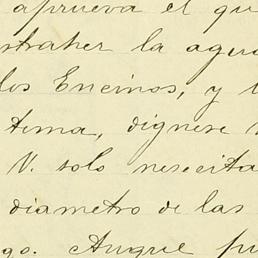 aprueva el qu
straher la agu
los Encinos, y
tema, dignese
V. solo nesecita
diametro de las
go. Aunque pu